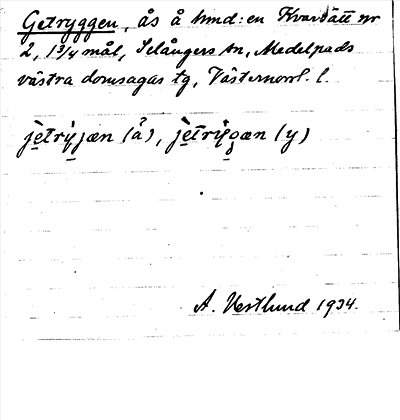 Getryggen, ås å hmd:en Kvarsätt nr
2, 1 3/4 mål, Selångers sn, Medelpads
västra domsagas tg, Västernorrl. l.
jètrỳjæn (å), jètrỳgæn (y)
A. Westlund 1934.